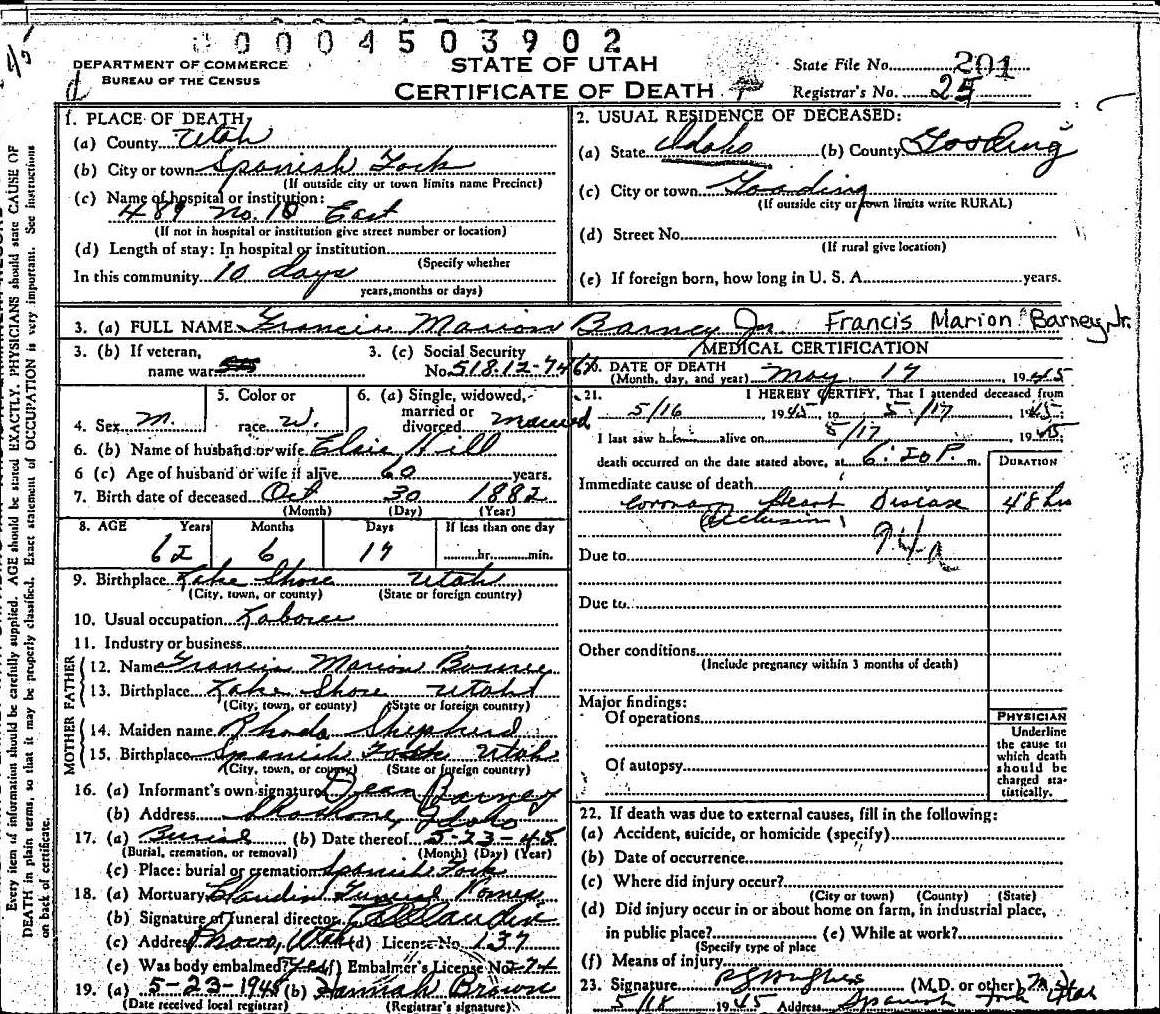 0004503902
DEPARTMENT OF COMMERCE
BUREAU OF THE CENSUS
STATE OF UTAH
CERTIFICATE OF DEATH
State File No. 201
Registrar's No. 25
1. PLACE OF DEATH
(a) County Utah
(b) City or town Spanish Fork
(If outside city or town limits name Precinct)
(c) Name of hospital or institution:
489 No. 10 East
(If not in hospital or institution give street number or location)
(d) Length of stay: In hospital or institution
(Specify whether
In this community 10 days
years, months or days)
2. USUAL RESIDENCE OF DECEASED:
(a) State Idaho (b) County Gooding
(c) City or town Gooding
(If outside city or town limits write RURAL)
(d) Street No.
(If rural give location)
(e) If foreign born, how long in U. S. A. years.
3. (a) FULL NAME Francis Marion Barney Jr. Francis Marion Barney Jr.
3. (b) If veteran,
name war
3. (c) Social Security
No. 518.12-746
4. Sex M.
5. Color or
race W.
6. (a) Single, widowed,
married or
divorced married
6. (b) Name of husband or wife Elsie Hill
6 (c) Age of husband or wife if alive 60 years.
7. Birth date of deceased Oct 30 1882
(Month) (Day) (Year)
8. AGE Years Months Days If less than one day
62 6 17 hr. min.
9. Birthplace Lake Shore Utah
(City, town, or county) (State or foreign country)
10. Usual occupation Laborer
11. Industry or business
FATHER
12. Name Francis Marion Barney
13. Birthplace Lake Shore Utah
(City, town, or county) (State or foreign country)
MOTHER
14. Maiden name Rhoda Shepherd
15. Birthplace Spanish Fork Utah
(City, town, or county) (State or foreign country)
16. (a) Informant's own signature Dean Barney
(b) Address Shoshone, Idaho
17. (a) Burial (b) Date thereof 5-23-45
(Burial, cremation, or removal) (Month) (Day) (Year)
(c) Place: burial or cremation Spanish Fork
18. (a) Mortuary Claudin Funeral Home
(b) Signature of funeral director
(c) Address Provo, Utah (d) License No. 137
(e) Was body embalmed? Yes (f) Embalmer's License No. 274
19. (a) 5-23-1945 (b) Hannah Brown
(Date received local registrar) (Registrar's signature)
MEDICAL CERTIFICATION
20. DATE OF DEATH
(Month, day, and year) May, 17, 1945
21. I HEREBY CERTIFY, That I attended deceased from
5/16, 1945, to 5/17, 1945.
I last saw him alive on 5/17, 1945.
death occurred on the date stated above, at 6:20 P. m.
DURATION
Immediate cause of death
Coronary Heart Disease 48 hrs
(Occlusion)
94a
Due to
Due to
Other conditions
(Include pregnancy within 3 months of death)
Major findings:
Of operations
Of autopsy
PHYSICIAN
Underline
the cause to
which death
should be
charged sta-
tistically.
22. If death was due to external causes, fill in the following:
(a) Accident, suicide, or homicide (specify)
(b) Date of occurrence
(c) Where did injury occur?
(City or town) (County) (State)
(d) Did injury occur in or about home on farm, in industrial place,
in public place? (e) While at work?
(Specify type of place
(f) Means of injury
23. Signature Hughes (M.D. or other)
5/18 1945 Address Spanish Fork Utah
Every item of information should be carefully supplied. AGE should be stated EXACTLY. PHYSICIANS should state CAUSE OF
DEATH in plain terms, so that it may be properly classified. Exact statement of OCCUPATION is very important. See instructions
on back of certificate.